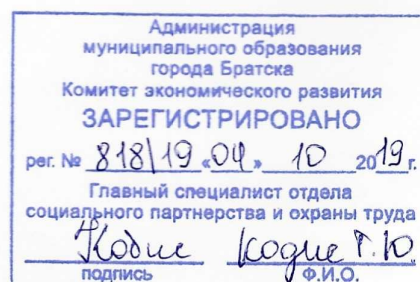 Администрация
муниципального образования
города Братска
Комитет экономического развития
ЗАРЕГИСТРИРОВАНО
рег. № 818/19 «04» 10 2019 г.
Главный специалист отдела
социального партнерства и охраны труда
Кодис Кодис Т.Ю.
подпись Ф.И.О.